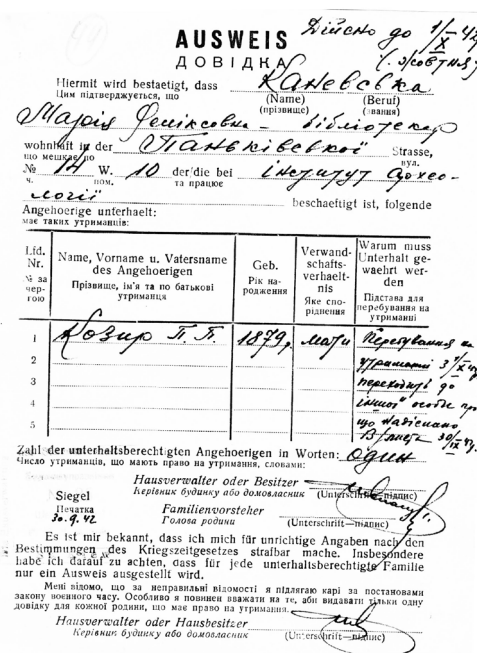 AUSWEIS
Дійсно до 1/X 42
ДОВІДКА
Hiermit wird bestaetigt, dass Каневська
Цим підтверджується, що (Name) (Beruf)
(прізвище) (звання)
Марія Феліксовна - бібліотекар
wohnhaft in der Паньківської Strasse,
що мешкає по вул.
№ 14 W. 10 der/die bei інститут Архео-
ч. пом. та працює
логії beschaeftigt ist, folgende
Angehoerige unterhaelt:
має таких утриманців:
Lfd. Nr.
№ за чер-
гою
Name, Vorname u. Vatersname
des Angehoerigen
Прізвище, ім'я та по батькові
утриманця
Geb.
Рік на-
родження
Verwand-
schafts-
verhaelt-
nis
Яке спо-
ріднення
Warum muss
Unterhalt ge-
waehrt wer-
den
Підстава для
перебування на
утриманні
1 Козир П. П. 1879, мати Перебування на
2 утриманні з 1/X 42
3 переходить до
4 іншої особи про
5 що надіслано
30/IX 42.
Zahl der unterhaltsberechtigten Angehoerigen in Worten: один
Число утриманців, що мають право на утримання, словами:
Hausverwalter oder Besitzer
Керівник будинку або домовласник (Unterschrift—підпис)
Siegel
Печатка
30.9.42
Familienvorsteher
Голова родини (Unterschrift—підпис)
Es ist mir bekannt, dass ich mich für unrichtige Angaben nach den
Bestimmungen des Kriegszeitgesetzes strafbar mache. Insbesondere
habe ich darauf zu achten, dass für jede unterhaltsberechtigte Familie
nur ein Ausweis ausgestellt wird.
Мені відомо, що за неправильні відомості я підлягаю карі за постановами
закону воєнного часу. Особливо я повинен вважати на те, аби видавати тільки одну
довідку для кожної родини, що має право на утримання.
Hausverwalter oder Hausbesitzer
Керівник будинку або домовласник (Unterschrift—підпис)